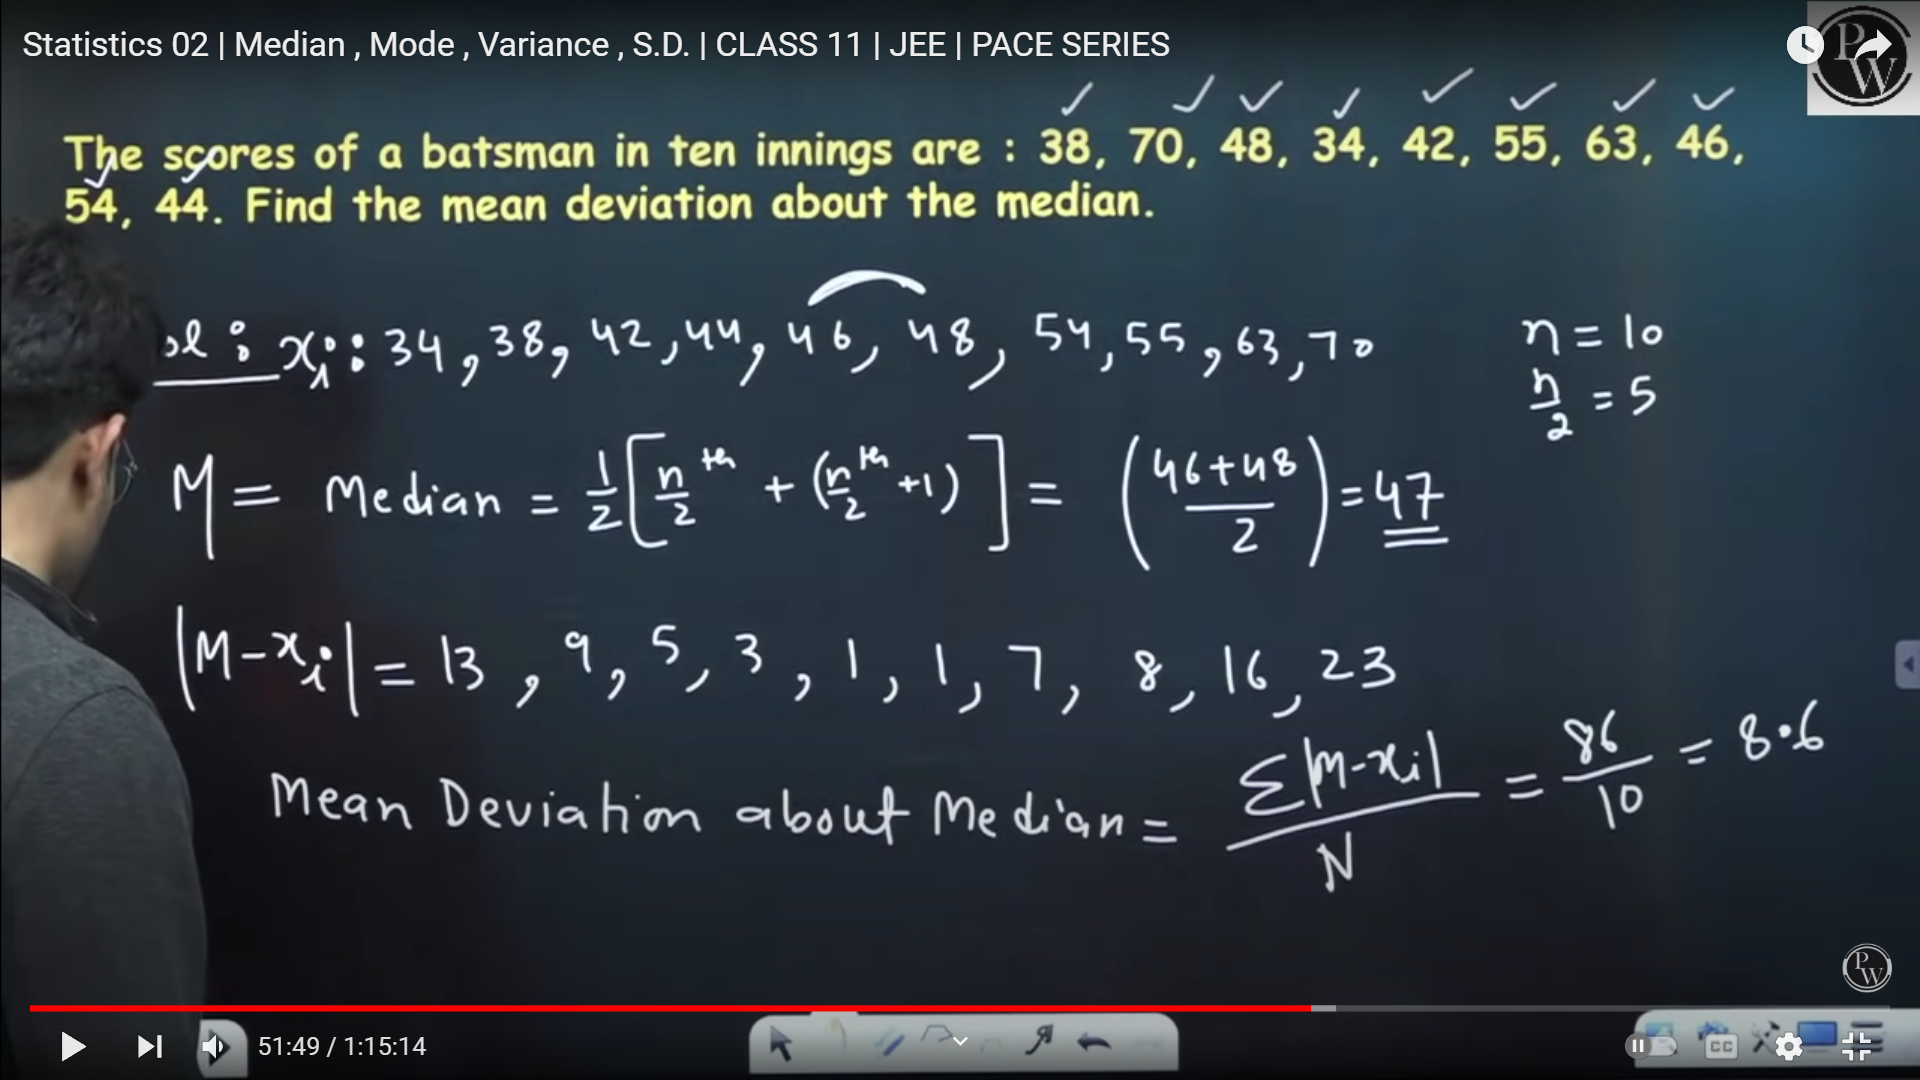 Statistics 02 | Median , Mode , Variance , S.D. | CLASS 11 | JEE | PACE SERIES
PW
The scores of a batsman in ten innings are : 38, 70, 48, 34, 42, 55, 63, 46,
54, 44. Find the mean deviation about the median.
ol : xi : 34, 38, 42, 44, 46, 48, 54, 55, 63, 70
n = 10
n/2 = 5
M = Median = 1/2 [n/2 th + (n/2 th +1)] = (46+48/2) = 47
|M-xi| = 13, 9, 5, 3, 1, 1, 7, 8, 16, 23
Mean Deviation about Median = Σ|M-xi|/N = 86/10 = 8.6
PW
51:49 / 1:15:14
CC